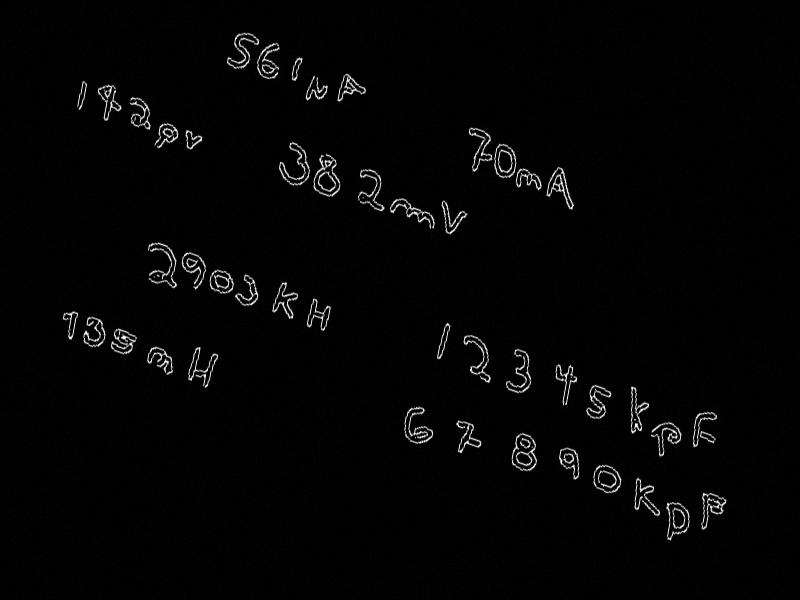 561nA
142pv
70mA
382mV
2903KH
135mH
12345kpF
67890KpF